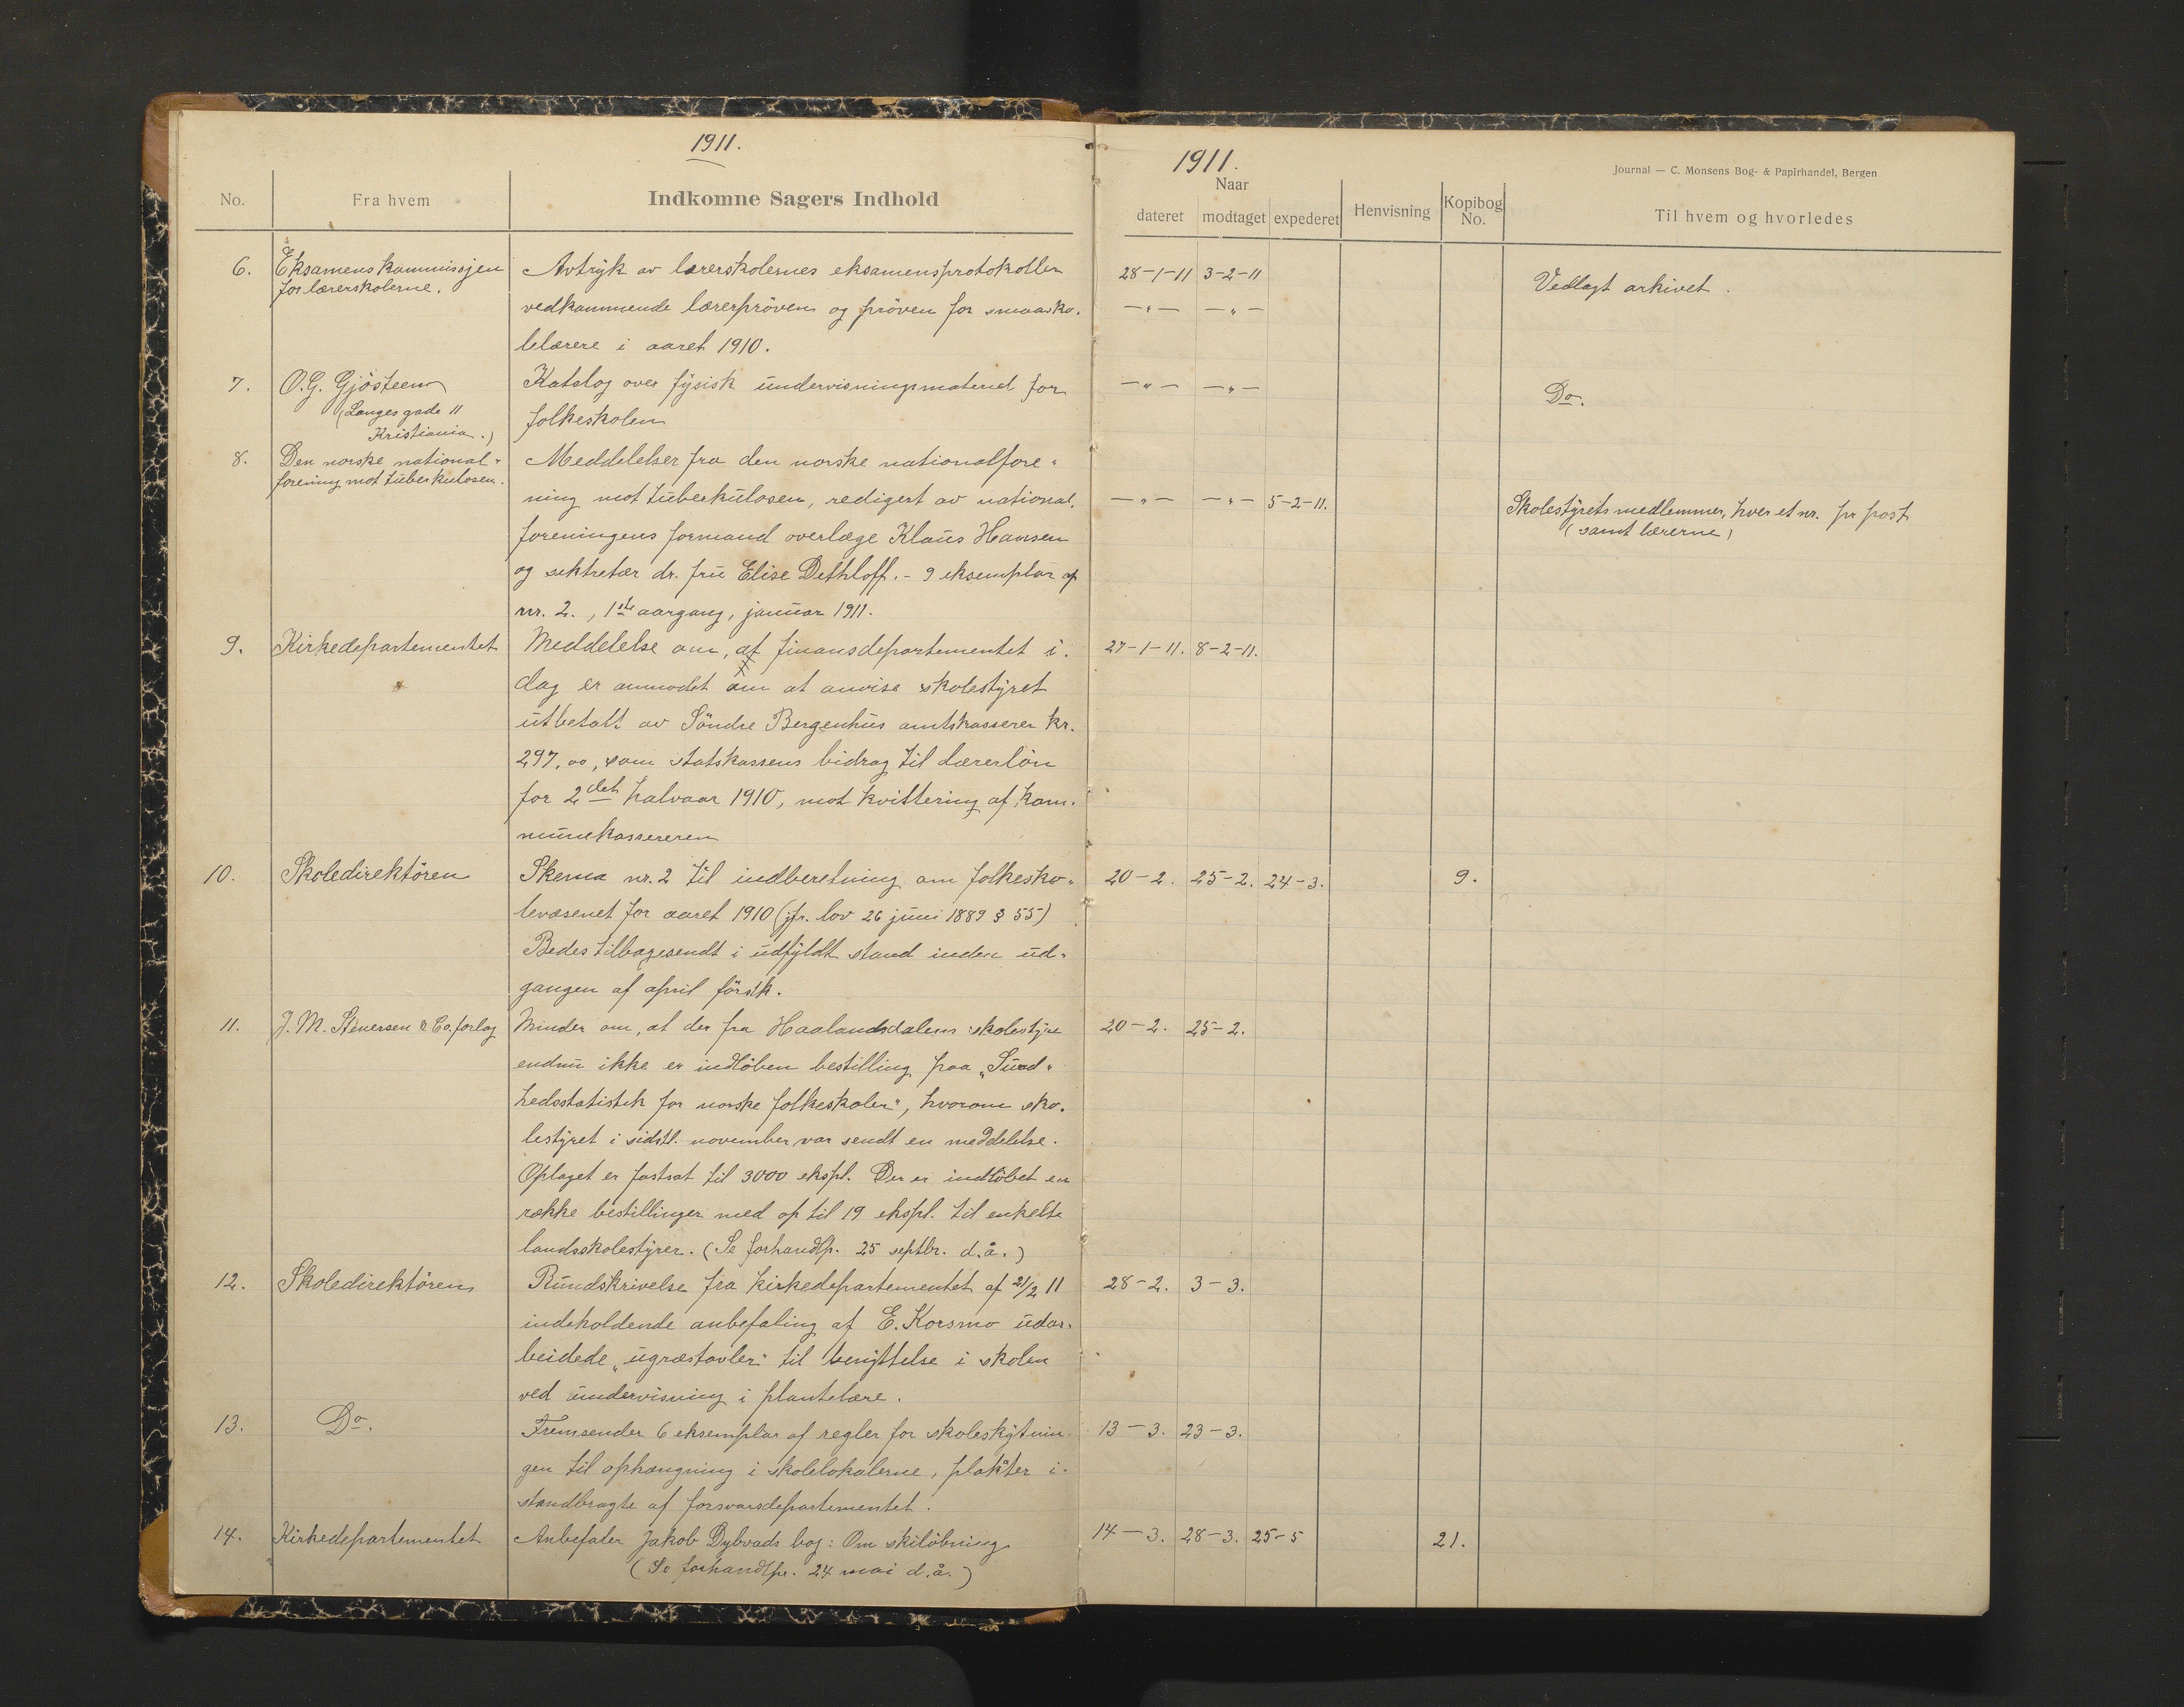 1911.
No. Fra hvem Indkomne Sagers Indhold
6. Eksamenskommissjen Avtryk av lærerskolernes eksamensprotokoller
for lærerskolerne.
vedkommende lærerprøven og prøven for smaasko-
lelærere i aaret 1910.
7. O.G. Gjösteen Katalog over fysisk undervisningsmateriel for
(Langes gade 11 folkeskolen
Kristiania.)
8. Den norske national- Meddelelser fra den norske nationalfore-
forening mot tuberkulosen.
ning mot tuberkulosen, redigert av national-
foreningens formand overlæge Klaus Hansen
og sektretær dr. fru Elise Dethloff. - 9 eksemplar af
nr. 2., 1ste aargang, januar 1911.
9. Kirkedepartementet Meddelelse om, at finansdepartementet i-
dag er anmodet om at anvise skolestyret
utbetalt av Söndre Bergenhus amtskasserer kr.
297,00, som statskassens bidrag til lærerlön
for 2det halvaar 1910, mot kvittering af kom-
munekassereren
10. Skoledirektören Skema nr. 2 til indberetning om folkesko-
levæsenet for aaret 1910 (jfr. lov 26 juni 1889 § 55)
Bedes tilbagesendt i udfyldt stand inden ud-
gangen af april förstk.
11. J. M. Stenersen & Co. forlag Minder om, at der fra Haalandsdalens skolestyre
endnu ikke er indlöben bestilling paa „Sund-
hedsstatistik for norske folkeskoler", hvorom sko-
lestyret i sidstl. november var sendt en meddelelse.
Oplaget er fastsat til 3000 ekspl. Der er indlöbet en
række bestillinger med op til 19 ekspl. til enkelte
landsskolestyrer. (Se forhandlp. 25 septbr. d.å.)
12. Skoledirektören Rundskrivelse fra kirkedepartementet af 21/2 11
indeholdende anbefaling af E. Korsmo udar-
beidede „ugræstavler" til benyttelse i skolen
ved undervisning i plantelære.
13. Do. Fremsender 6 eksemplar af regler for skoleskytnin-
gen til ophængning i skolelokalerne, plakter i-
standbragte af forsvarsdepartementet.
14. Kirkedepartementet Anbefaler Jakob Dybvads bog: Om skilöbning
(Se forhandlpr. 24 mai d.å.)
1911.
Journal — C. Monsens Bog- & Papirhandel, Bergen
Naar
dateret modtaget expederet Henvisning Kopibog No. Til hvem og hvorledes
28-1-11 3-2-11 Vedlagt arkivet.
—„— —„—
—„— —„— Do.
—„— —„— 5-2-11. Skolestyrets medlemmer, hver et nr. pr post
(samt lærerne)
27-1-11. 8-2-11.
20-2. 25-2. 24-3. 9.
20-2. 25-2.
28-2. 3-3.
13-3. 23-3.
14-3. 28-3. 25-5 21.